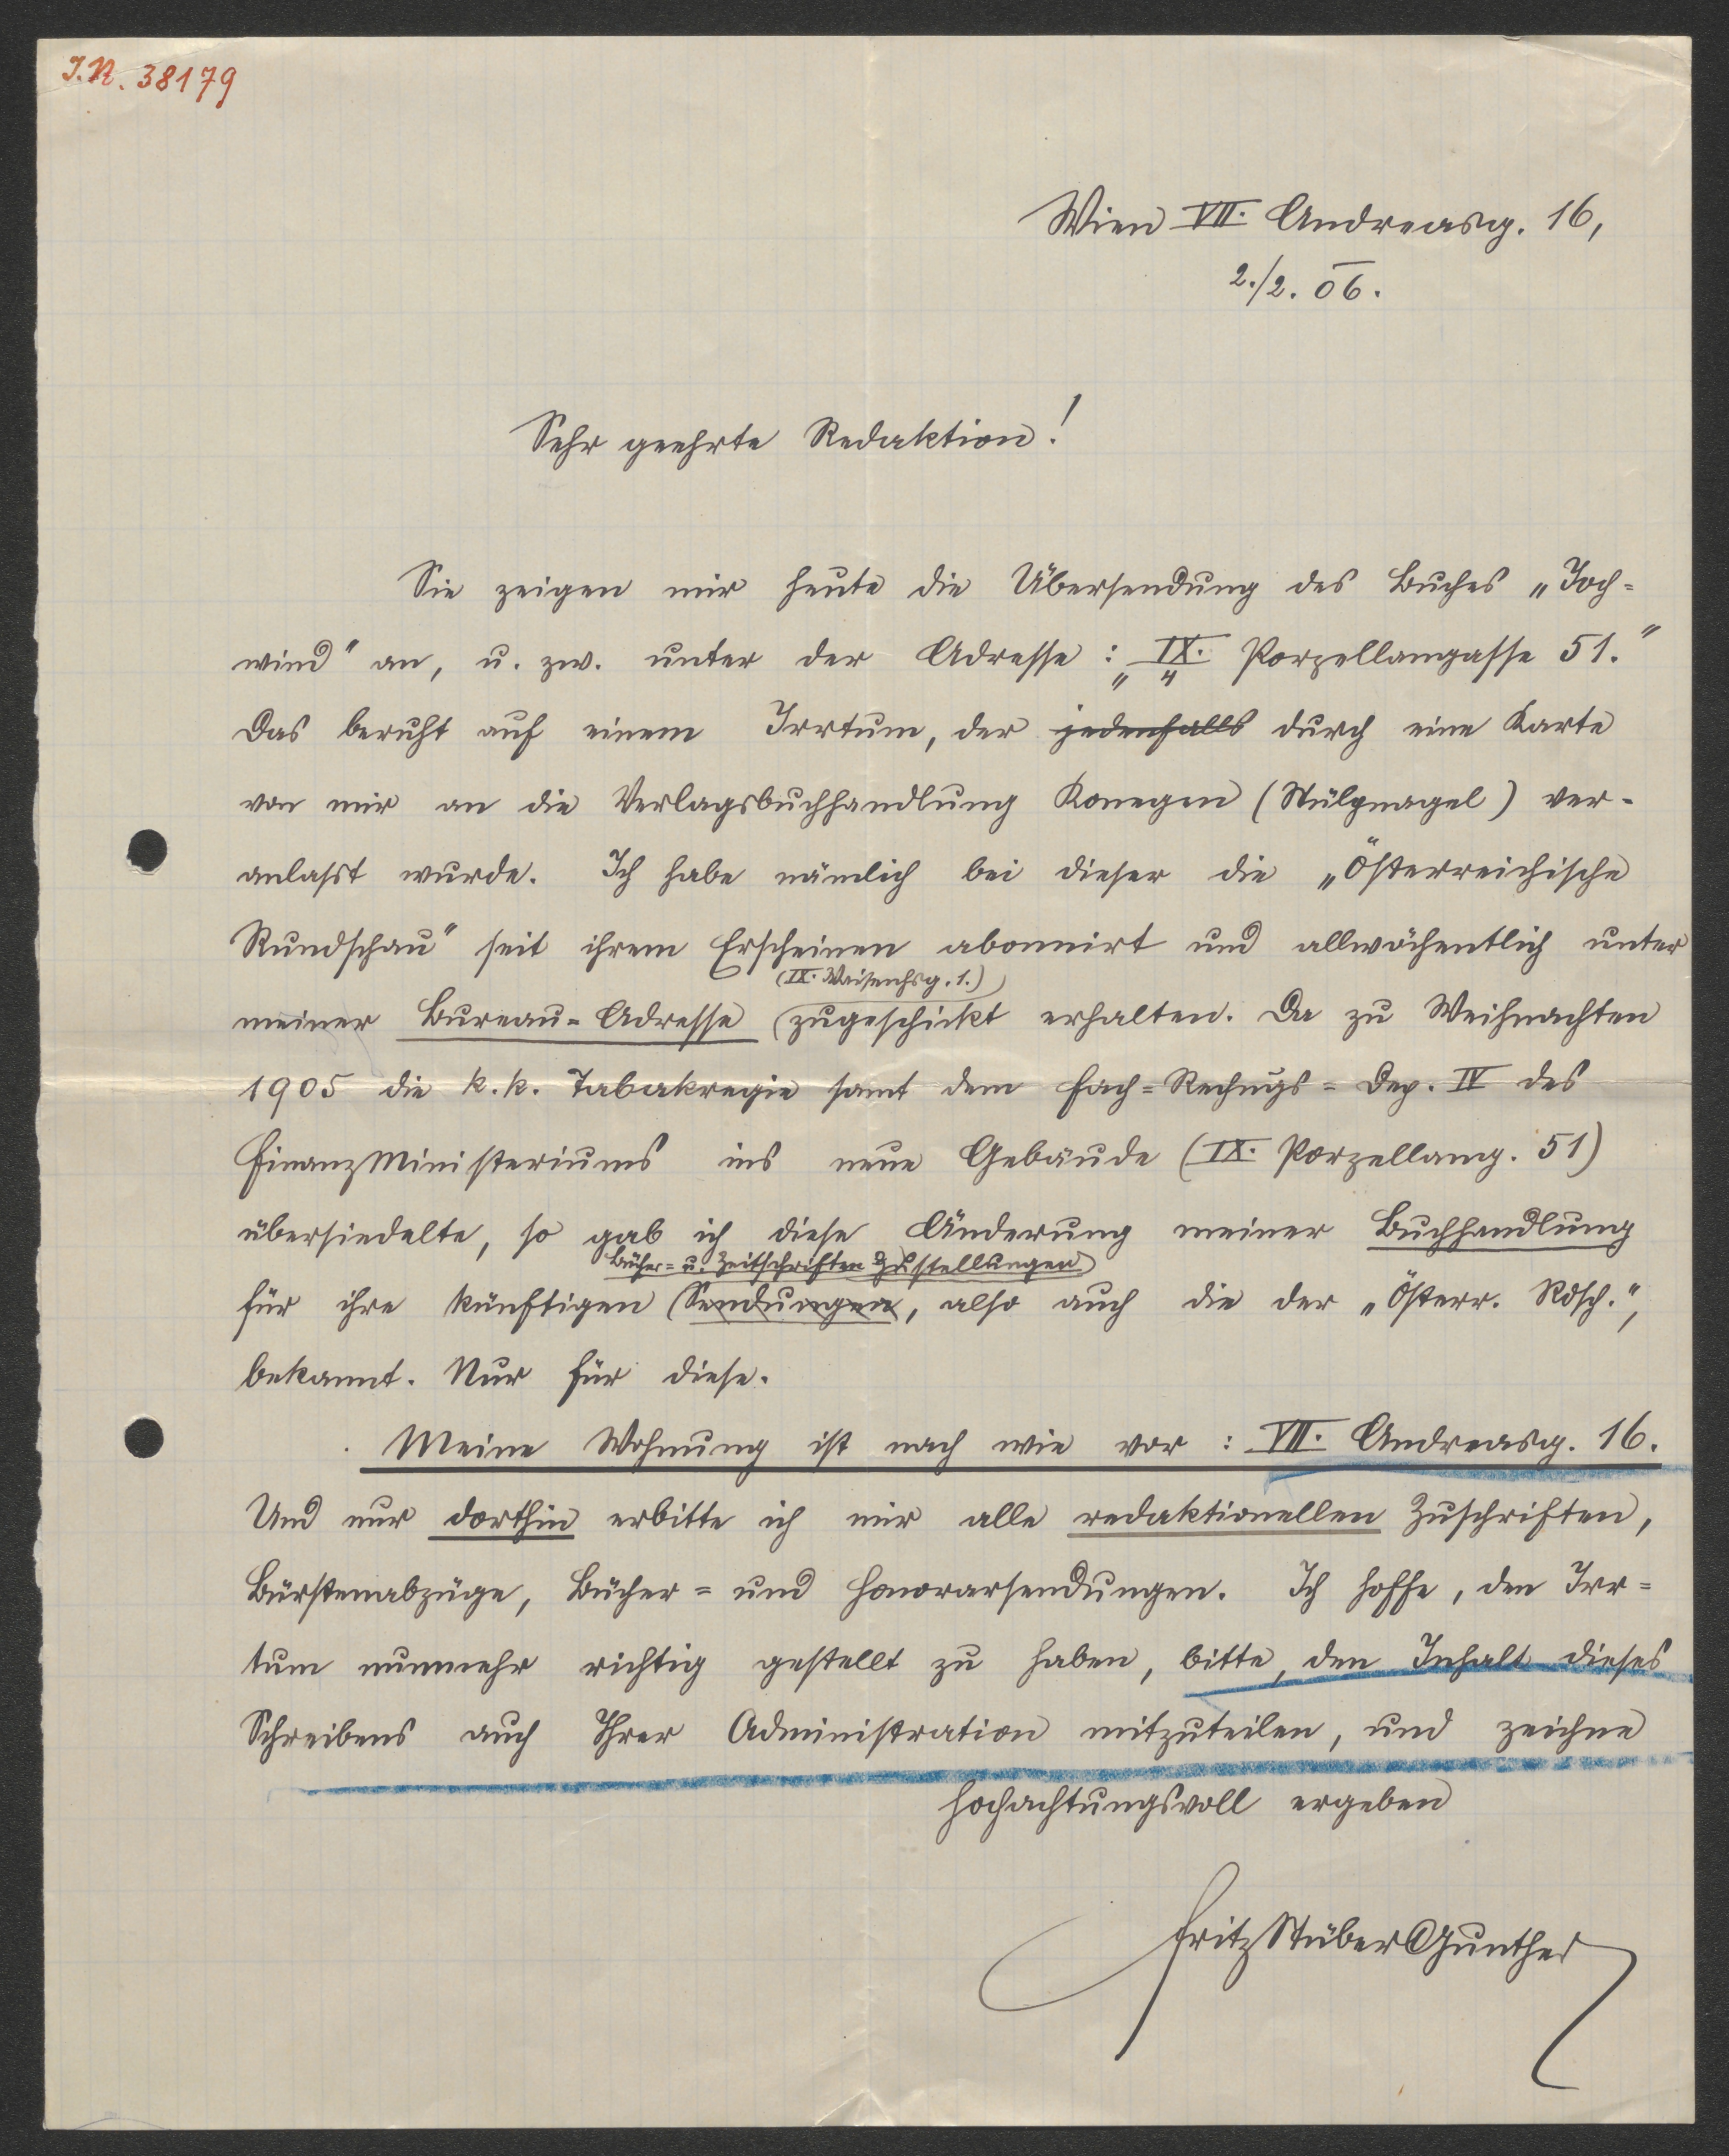 J.N. 38179
Wien VII. Andreasg. 16,
2./2. 06.
Sehr geehrte Redaktion!
Sie zeigen mir heute die Übersendung des Buches „Joch=
wind" an, u. zw. unter der Adresse: „IX. Porzellangasse 51."
Das beruht auf einem Irrtum, der jedenfalls durch eine Karte
von mir an die Verlagsbuchhandlung Konegen (Stülpnagel) ver-
anlasst wurde. Ich habe nämlich bei dieser die „Österreichische
Rundschau" seit ihrem Erscheinen abonnirt und allwöchentlich unter
(IX. Waisenhsg. 1.)
meiner Bureau-Adresse zugeschickt erhalten. Da zu Weihnachten
1905 die k.k. Tabakregie samt dem Fach=Rechngs=Dep. IV des
Finanzministeriums ins neue Gebäude (IX. Porzellang. 51)
übersiedelte, so gab ich diese Änderung meiner Buchhandlung
Bücher- u. Zeitschriften Zustellungen
für ihre künftigen Sendungen, also auch die der „Österr. Rdsch.",
bekannt. Nur für diese.
Meine Wohnung ist nach wie vor: VII. Andreasg. 16.
Und nur dorthin erbitte ich mir alle redaktionellen Zuschriften,
Bürstenabzüge, Bücher= und Honorarsendungen. Ich hoffe, den Irr=
tum nunmehr richtig gestellt zu haben, bitte, den Inhalt dieses
Schreibens auch Ihrer Administration mitzuteilen, und zeichne
hochachtungsvoll ergeben
Fritz Stüber Gunther